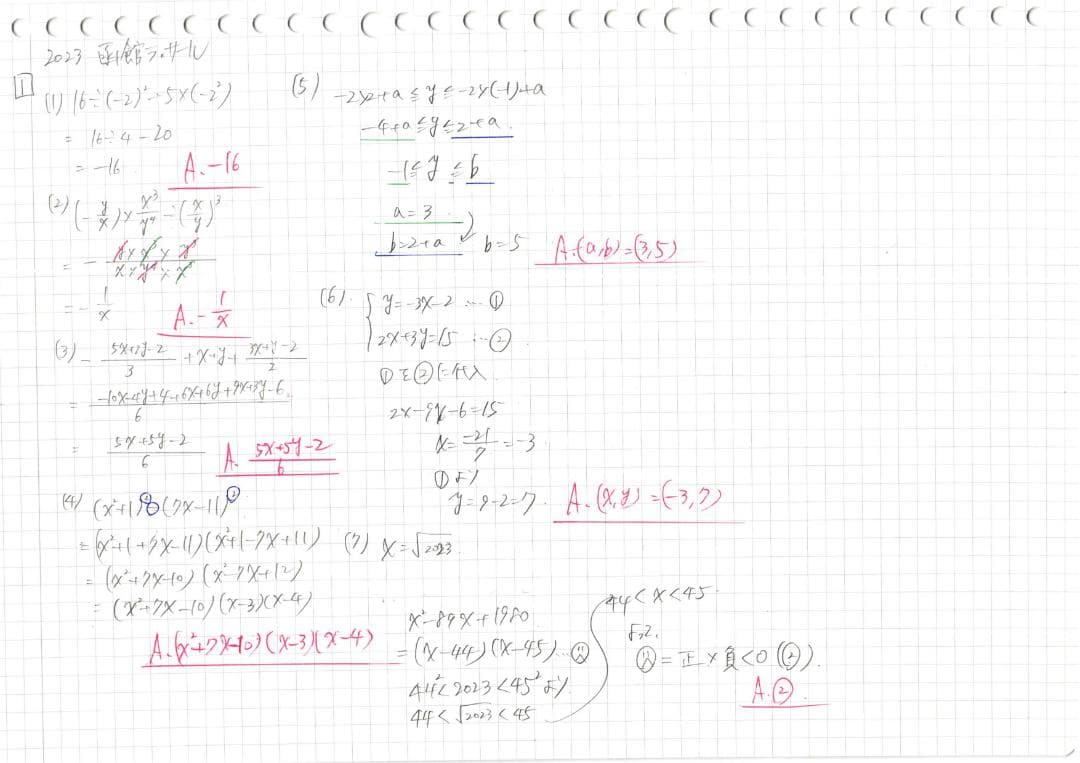 2023 函館ラ・サール
1
(1) 16÷(-2)²-5×(-2²)
= 16÷4-20
= -16
A. -16
(2) (-y/x)×x³/y⁴÷(x/y)³
= -1/x
A. -1/x
(3) -(5x+2y-2)/3+x+y+(3x+y-2)/2
= (-10x-4y+4+6x+6y+9x+3y-6)/6
= (5x+5y-2)/6
A. (5x+5y-2)/6
(4) (x²+1)²-(7x-11)²
= (x²+1+7x-11)(x²+1-7x+11)
= (x²+7x-10)(x²-7x+12)
= (x²+7x-10)(x-3)(x-4)
A. (x²+7x-10)(x-3)(x-4)
(5) -2×2+a≦y≦-2×(-1)+a
-4+a≦y≦2+a
-1≦y≦b
a=3
b=2+a
b=5
A. (a,b)=(3,5)
(6). y=-3x-2 … ①
2x+3y=15 … ②
①を②に代入
2x-9x-6=15
x=-21/7=-3
①より
y=9-2=7.
A. (x,y)=(-3,7)
(7) x=√2023
x²-89x+1980
=(x-44)(x-45)…
44²<2023<45²より
44<√2023<45
44<x<45
よって.
=正×負<0(②).
A. ②